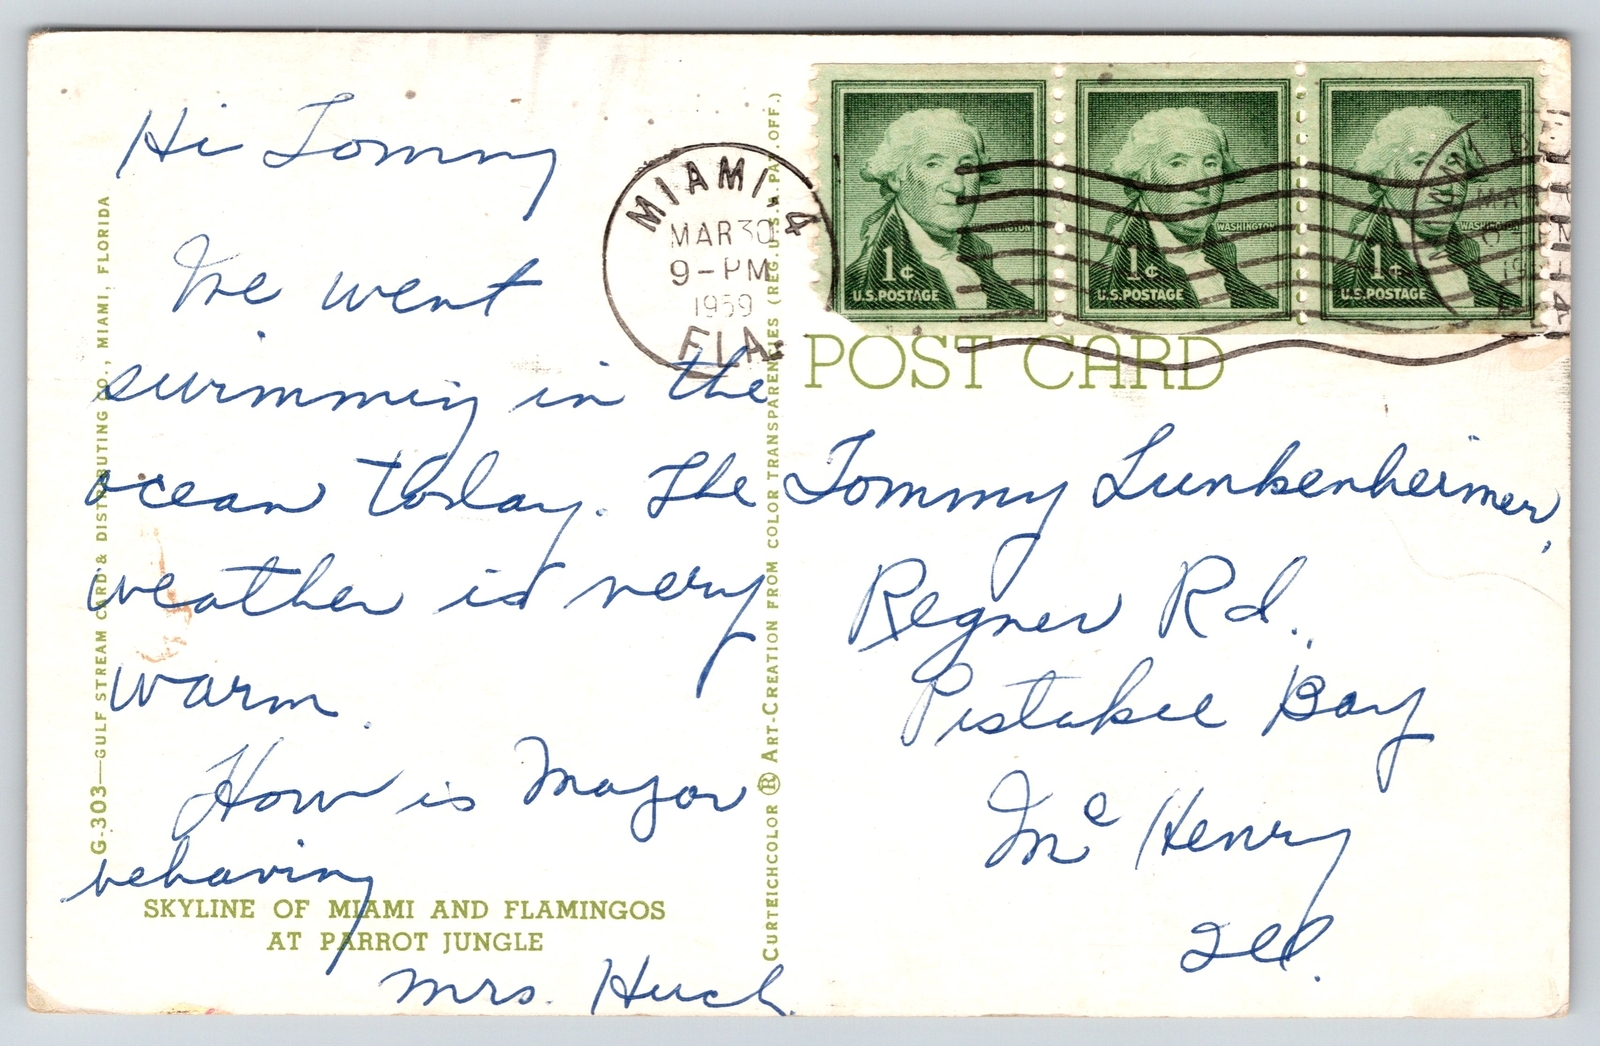 Hi Tommy
We went
swimming in the
ocean today. The
weather is very
warm.
How is Major
behaving
Mrs. Huck
SKYLINE OF MIAMI AND FLAMINGOS
AT PARROT JUNGLE
G-303—GULF STREAM CARD & DISTRIBUTING CO., MIAMI, FLORIDA
CURTEICHCOLOR ® ART-CREATION FROM COLOR TRANSPARENCIES (REG. U.S.A. PAT. OFF.)
MIAMI, 4
MAR 30
9-PM
1959
FLA.
WASHINGTON
1¢
U.S.POSTAGE
WASHINGTON
1¢
U.S.POSTAGE
WASHINGTON
1¢
U.S.POSTAGE
POST CARD
Tommy Lunkenheimer,
Regner Rd.,
Pistakee Bay
McHenry
Ill.